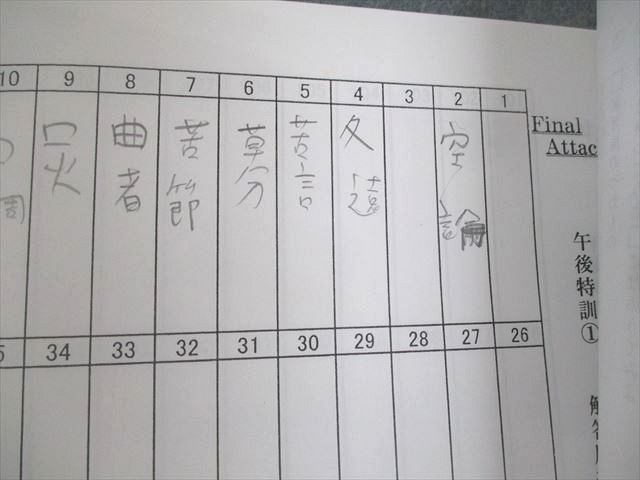 Final
Attac
午後特訓①
解答
1
2
空論
3
4
5
苦言
6
草分
7
苦節
8
曲者
9
口火
10
26
27
28
29
30
31
32
33
34
5